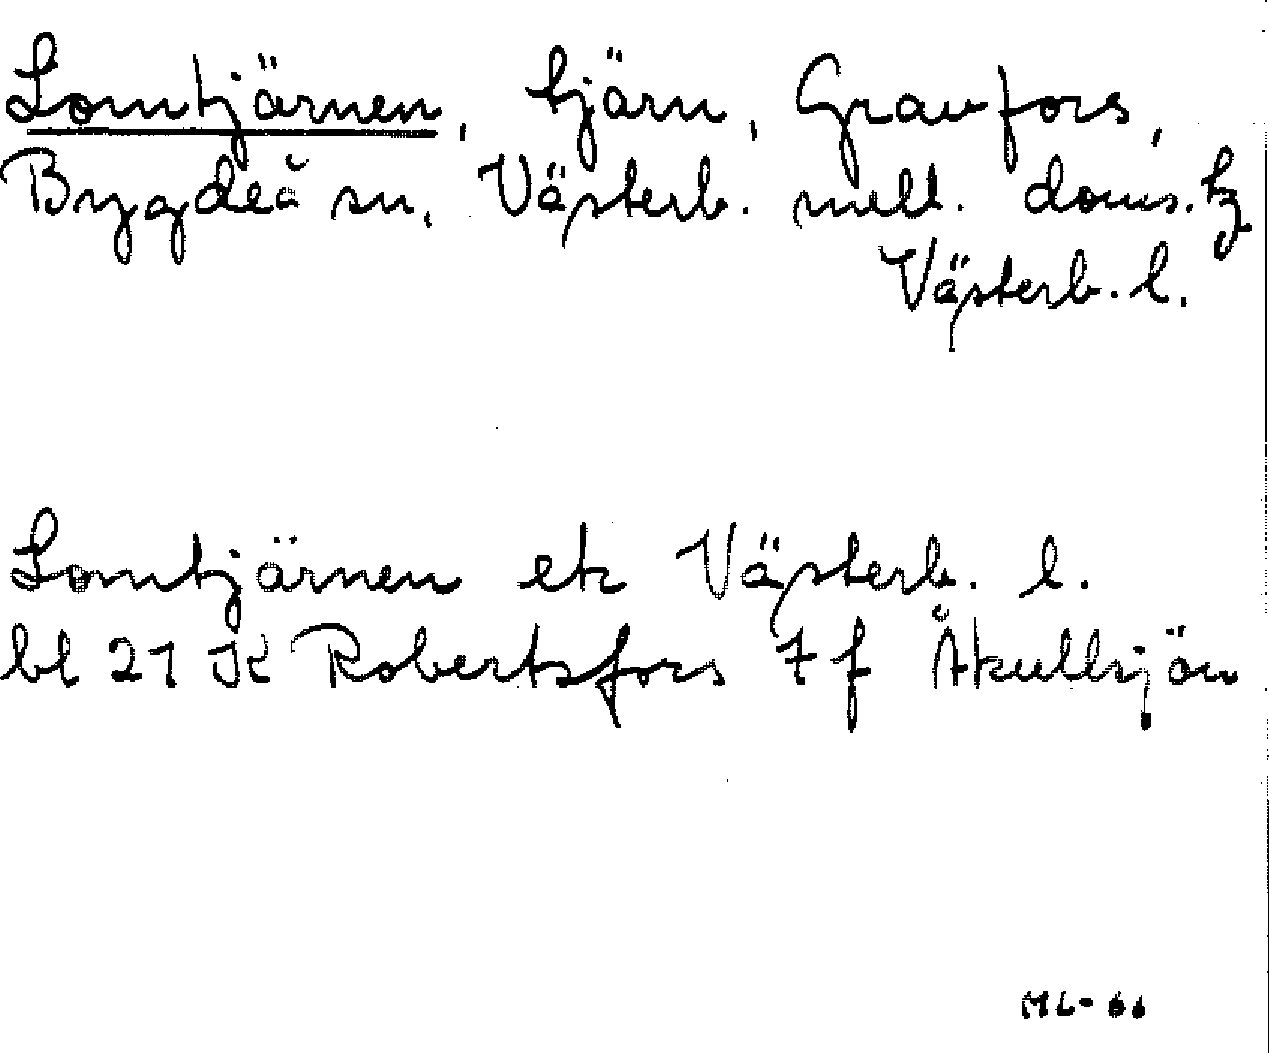 Lomtjärnen, tjärn, Granfors,
Bygdeå sn, Västerb. mell. doms. tg
Västerb. l.
Lomtjärnen ek Västerb. l.
bl 21 K Robertsfors 7 f Åkullsjön
ML-66